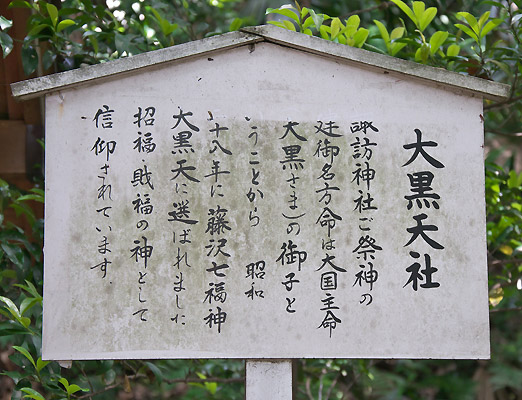 大黒天社
諏訪神社ご祭神の
建御名方命は大国主命
大黒さま)の御子と
うことから 昭和
十八年に藤沢七福神
大黒天に選ばれました
招福・賎福の神として
信仰されています.